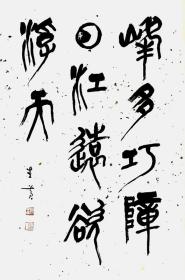 峰多巧障
日江遠欲
浮天